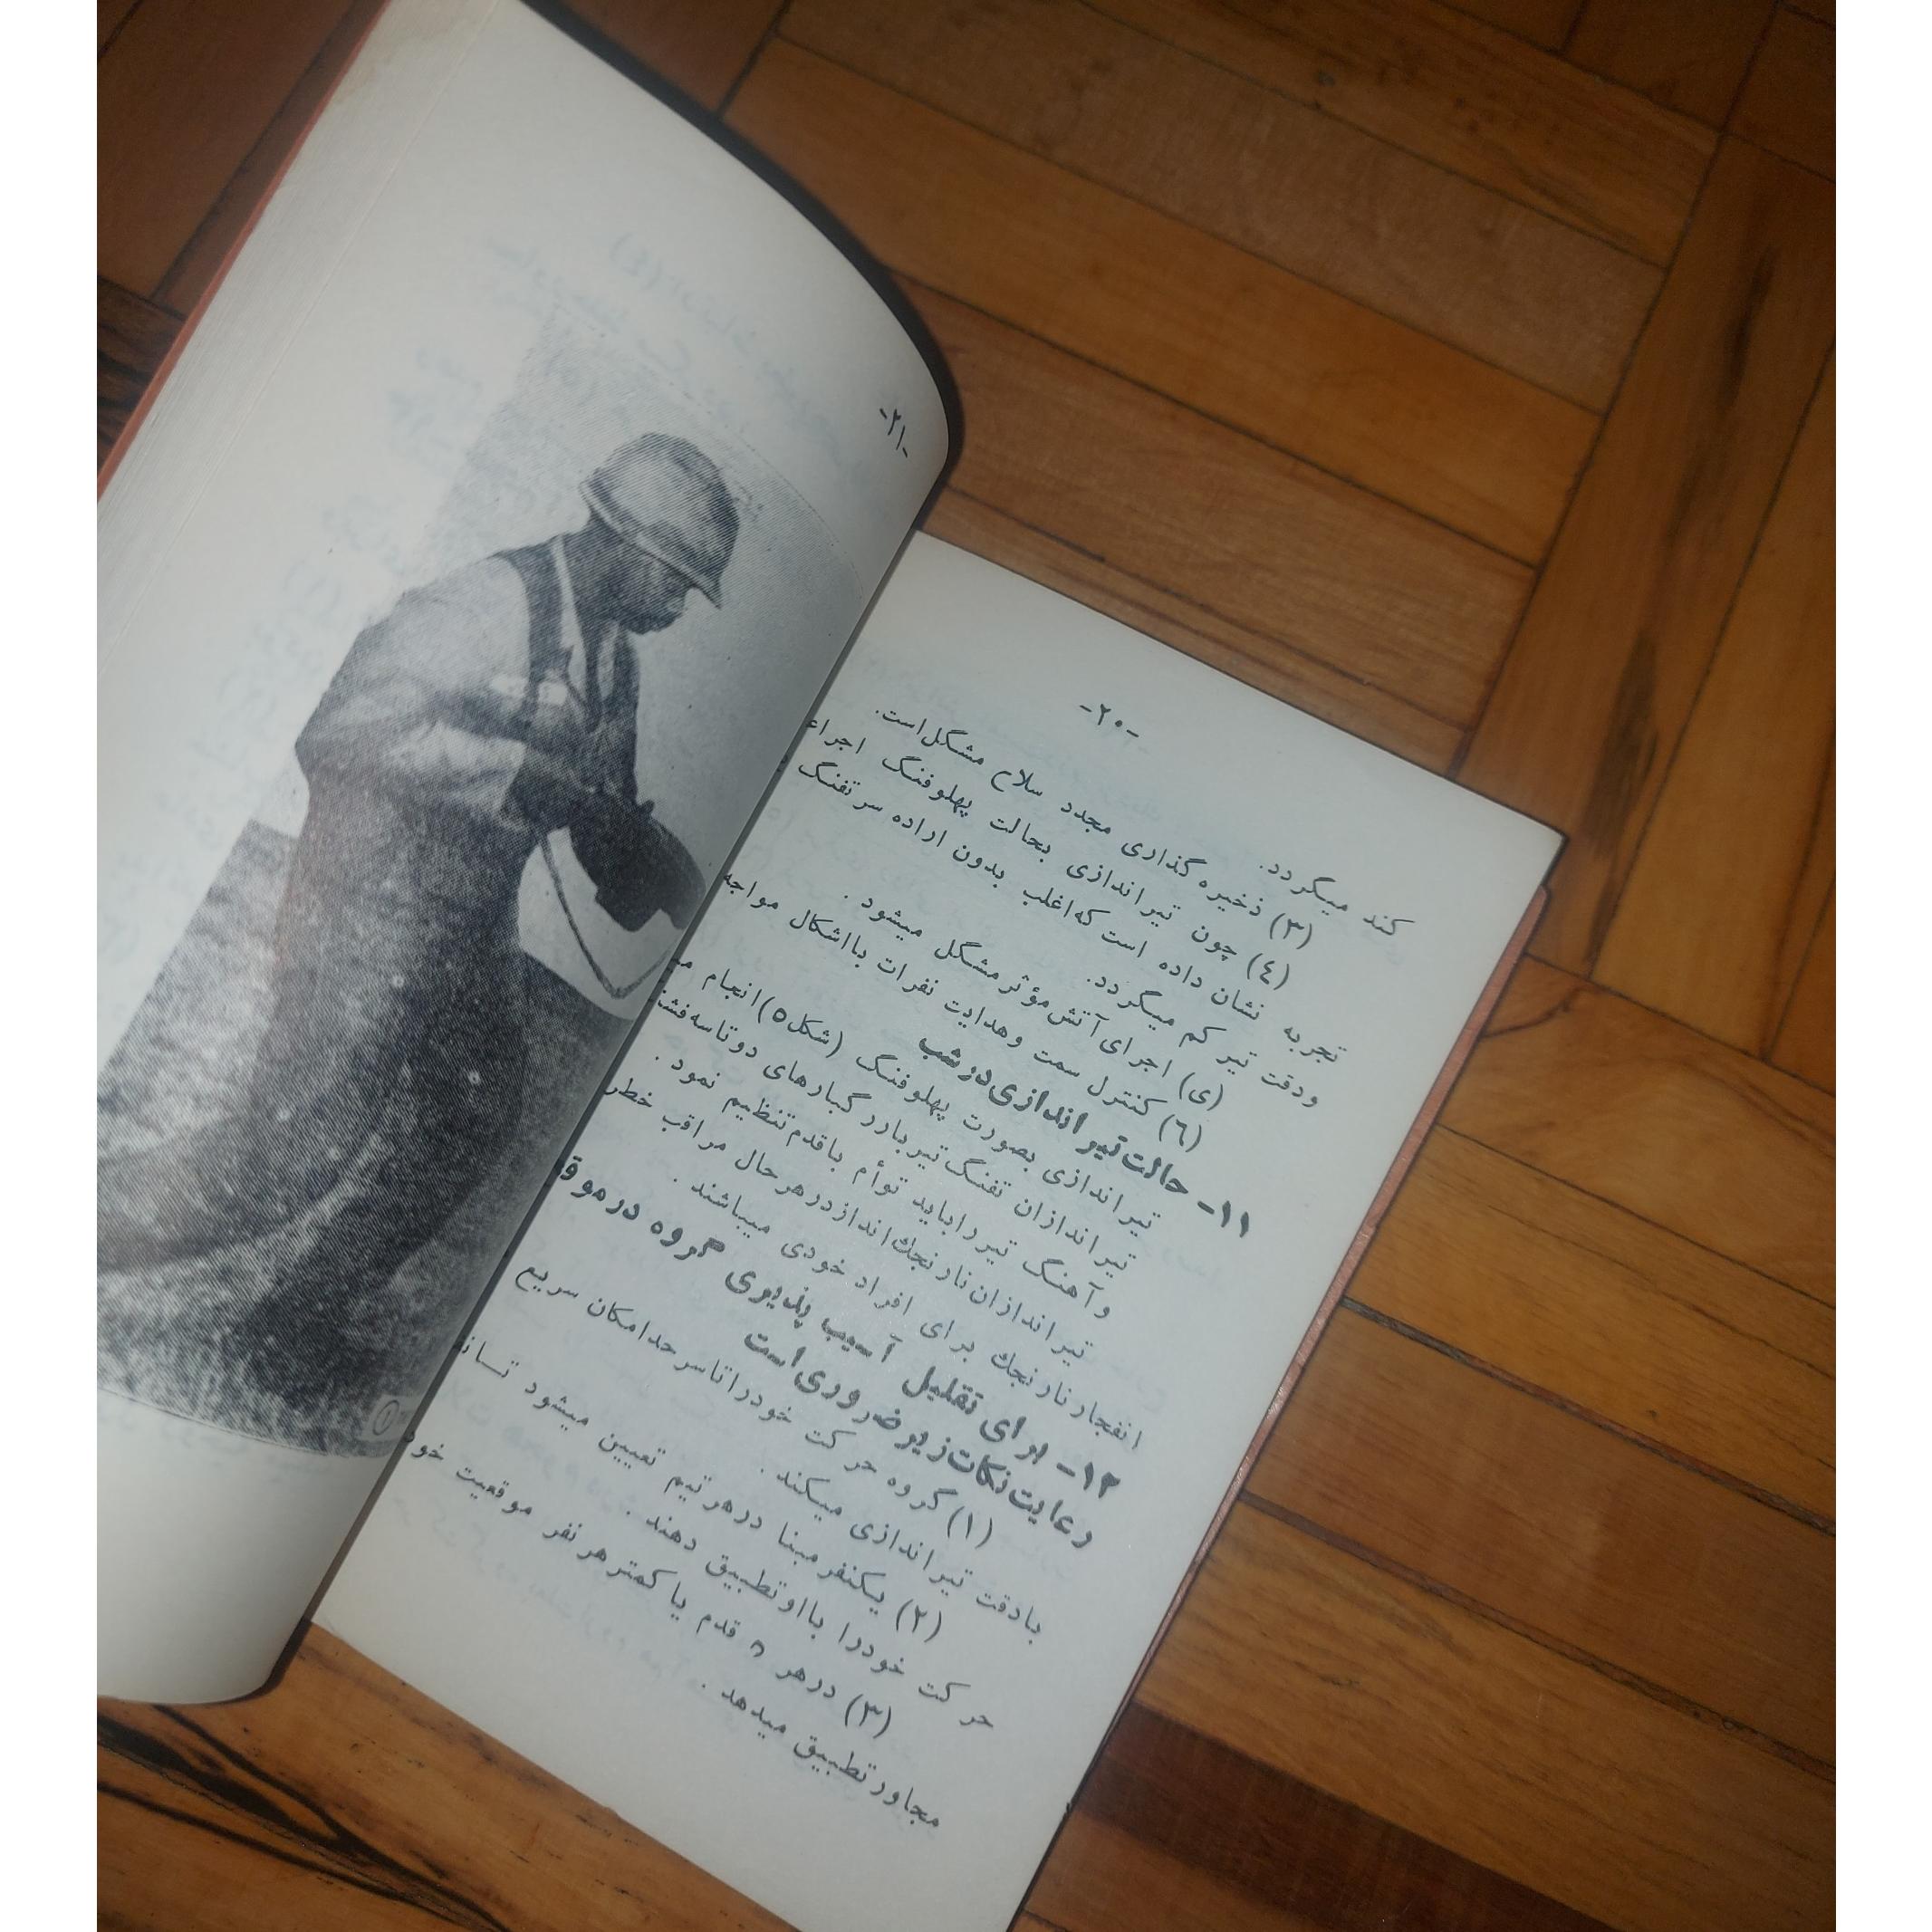 -۲۰-
کند میگردد.
(۳) ذخیره گذاری مجدد سلاح مشکل است.
(٤) چون تیراندازی بحالت پهلوفنگ اجراء
تجربه نشان داده است که اغلب بدون اراده سر تفنگ
ودقت تیر کم میگردد.
(ی) اجرای آتش مؤثر مشکل میشود .
(٦) کنترل سمت وهدایت نفرات بااشکال مواجه
۱۱- حالت تیراندازی در شب
تیراندازی بصورت پهلوفنگ (شکل ۵) انجام
تیراندازان تفنگ تیربار رگبارهای دوتاسه
وآهنگ تیر راباید توأم باقدم تنظیم نمود .
تیراندازان نارنجك انداز درهر حال مراقب خطر
انفجار نارنجك برای افراد خودی میباشند .
۱۲- برای تقلیل آسیب پذیری گروه در
رعایت نکات زیر ضروری است
(۱) گروه حرکت خودرا تاسرحد امکان سریع
بادقت تیراندازی میکند .
(۲) یکنفر مبنا درهر تیم تعیین میشود
حرکت خودرا بااو تطبیق دهند .
(۳) درهر ۸ قدم یا کمتر هر نفر موقعیت
مجاور تطبیق میدهد .
-۲۱-